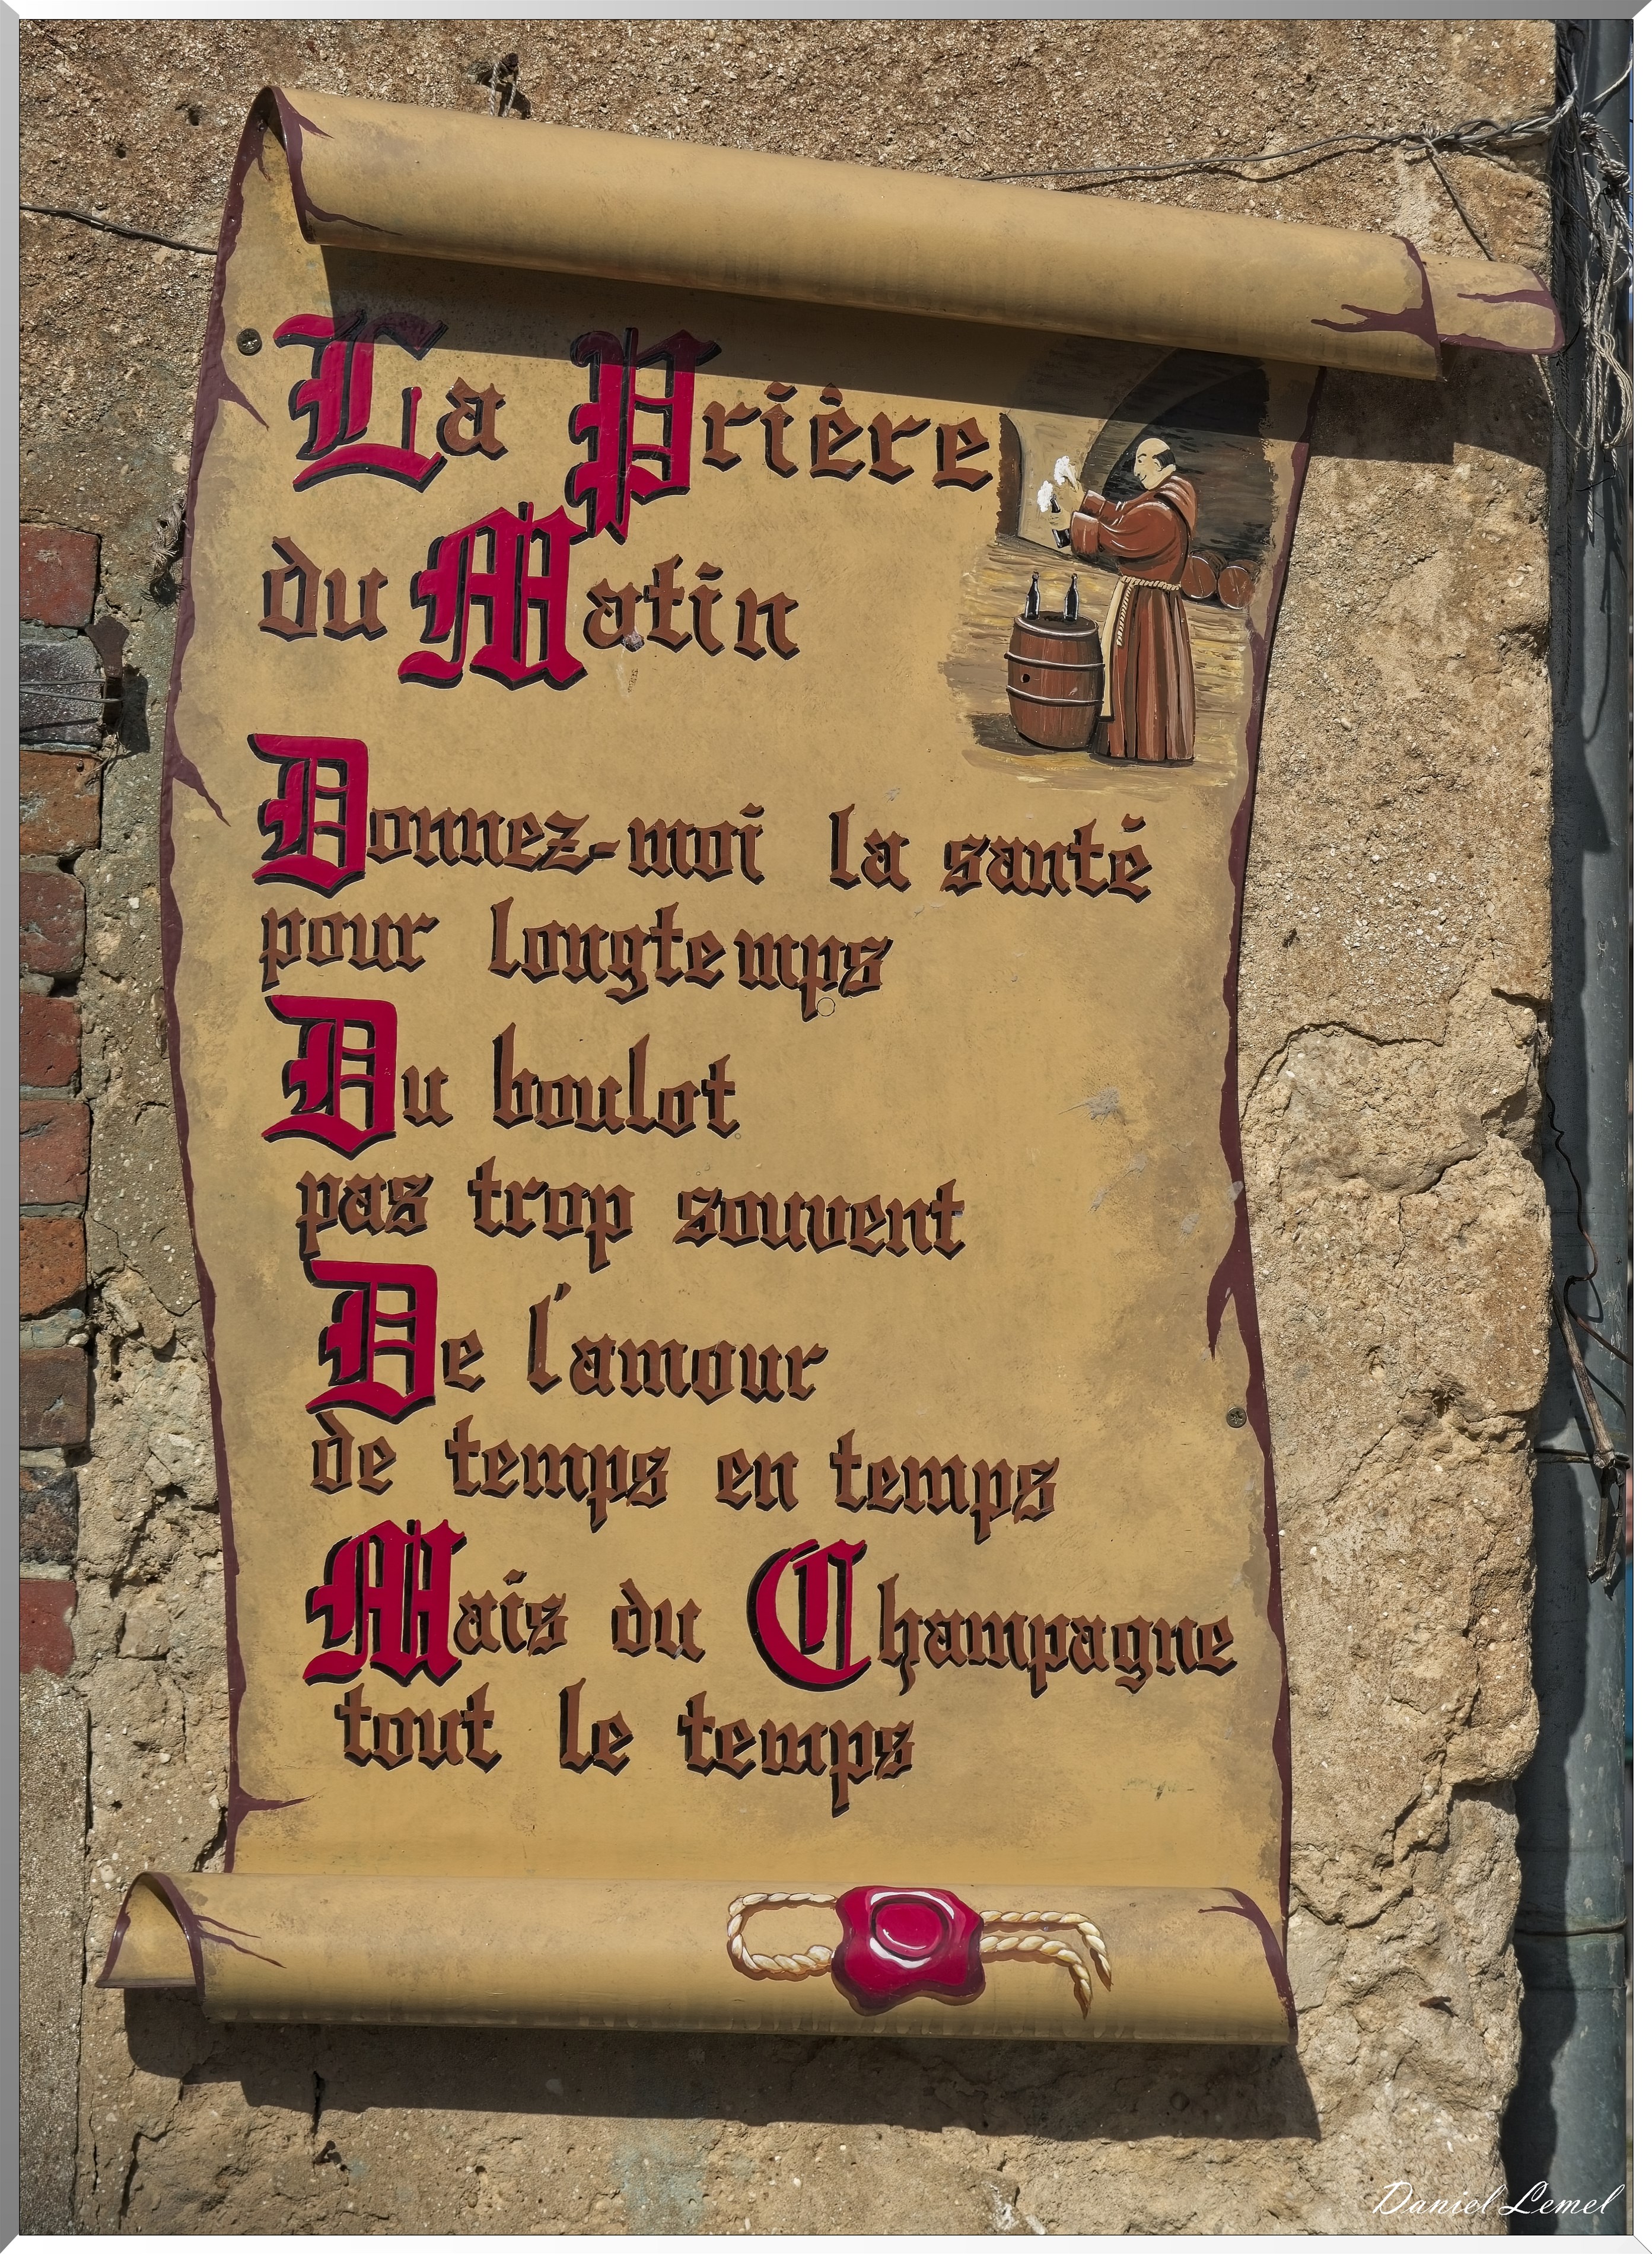 La Prière
du Matin
Donnez-moi la santé
pour longtemps
Du boulot
pas trop souvent
De l'amour
de temps en temps
Mais du Champagne
tout le temps
Daniel Lemel